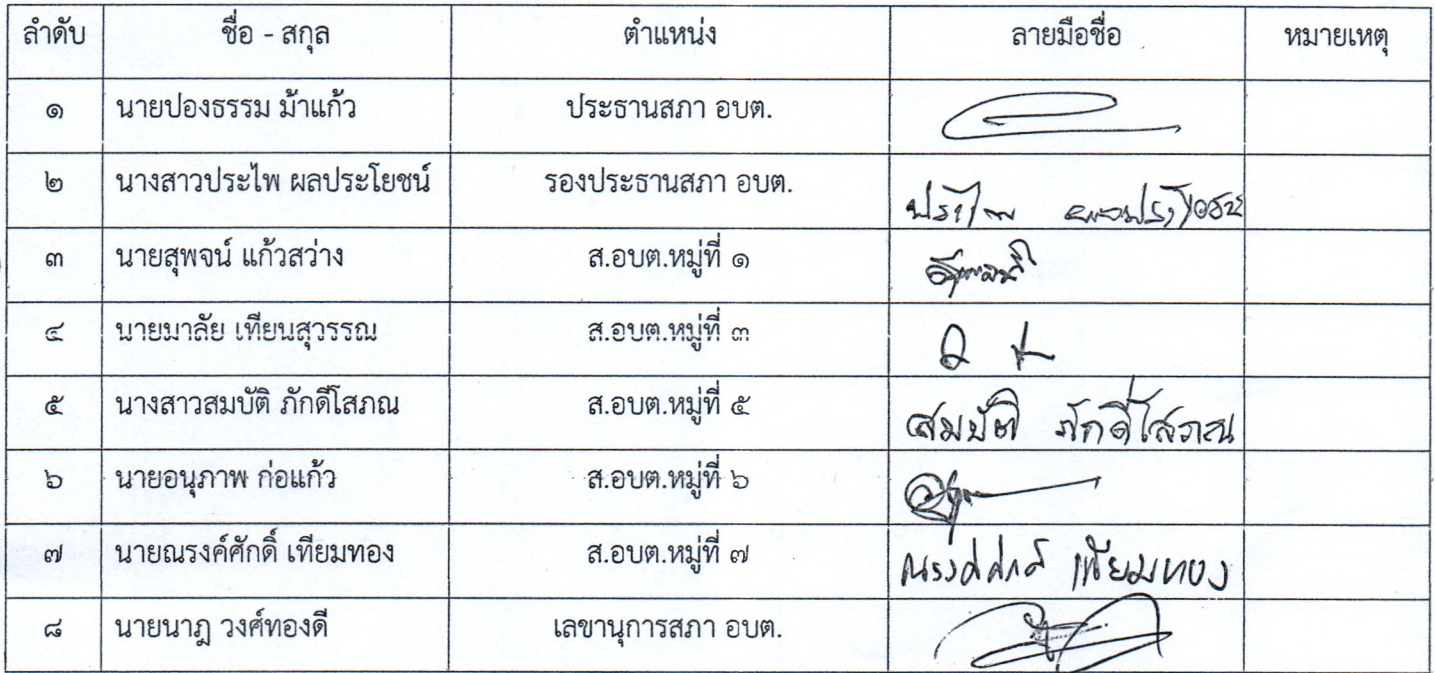 ลำดับ ชื่อ - สกุล ตำแหน่ง ลายมือชื่อ หมายเหตุ
๑ นายปองธรรม ม้าแก้ว ประธานสภา อบต.
๒ นางสาวประไพ ผลประโยชน์ รองประธานสภา อบต. ประไพ ผลประโยชน์
๓ นายสุพจน์ แก้วสว่าง ส.อบต.หมู่ที่ ๑
๔ นายมาลัย เทียนสุวรรณ ส.อบต.หมู่ที่ ๓
๕ นางสาวสมบัติ ภักดีโสภณ ส.อบต.หมู่ที่ ๕ สมบัติ ภักดีโสภณ
๖ นายอนุภาพ ก่อแก้ว ส.อบต.หมู่ที่ ๖
๗ นายณรงค์ศักดิ์ เทียมทอง ส.อบต.หมู่ที่ ๗ ณรงค์ศักดิ์ เทียมทอง
๘ นายนาฎ วงศ์ทองดี เลขานุการสภา อบต.